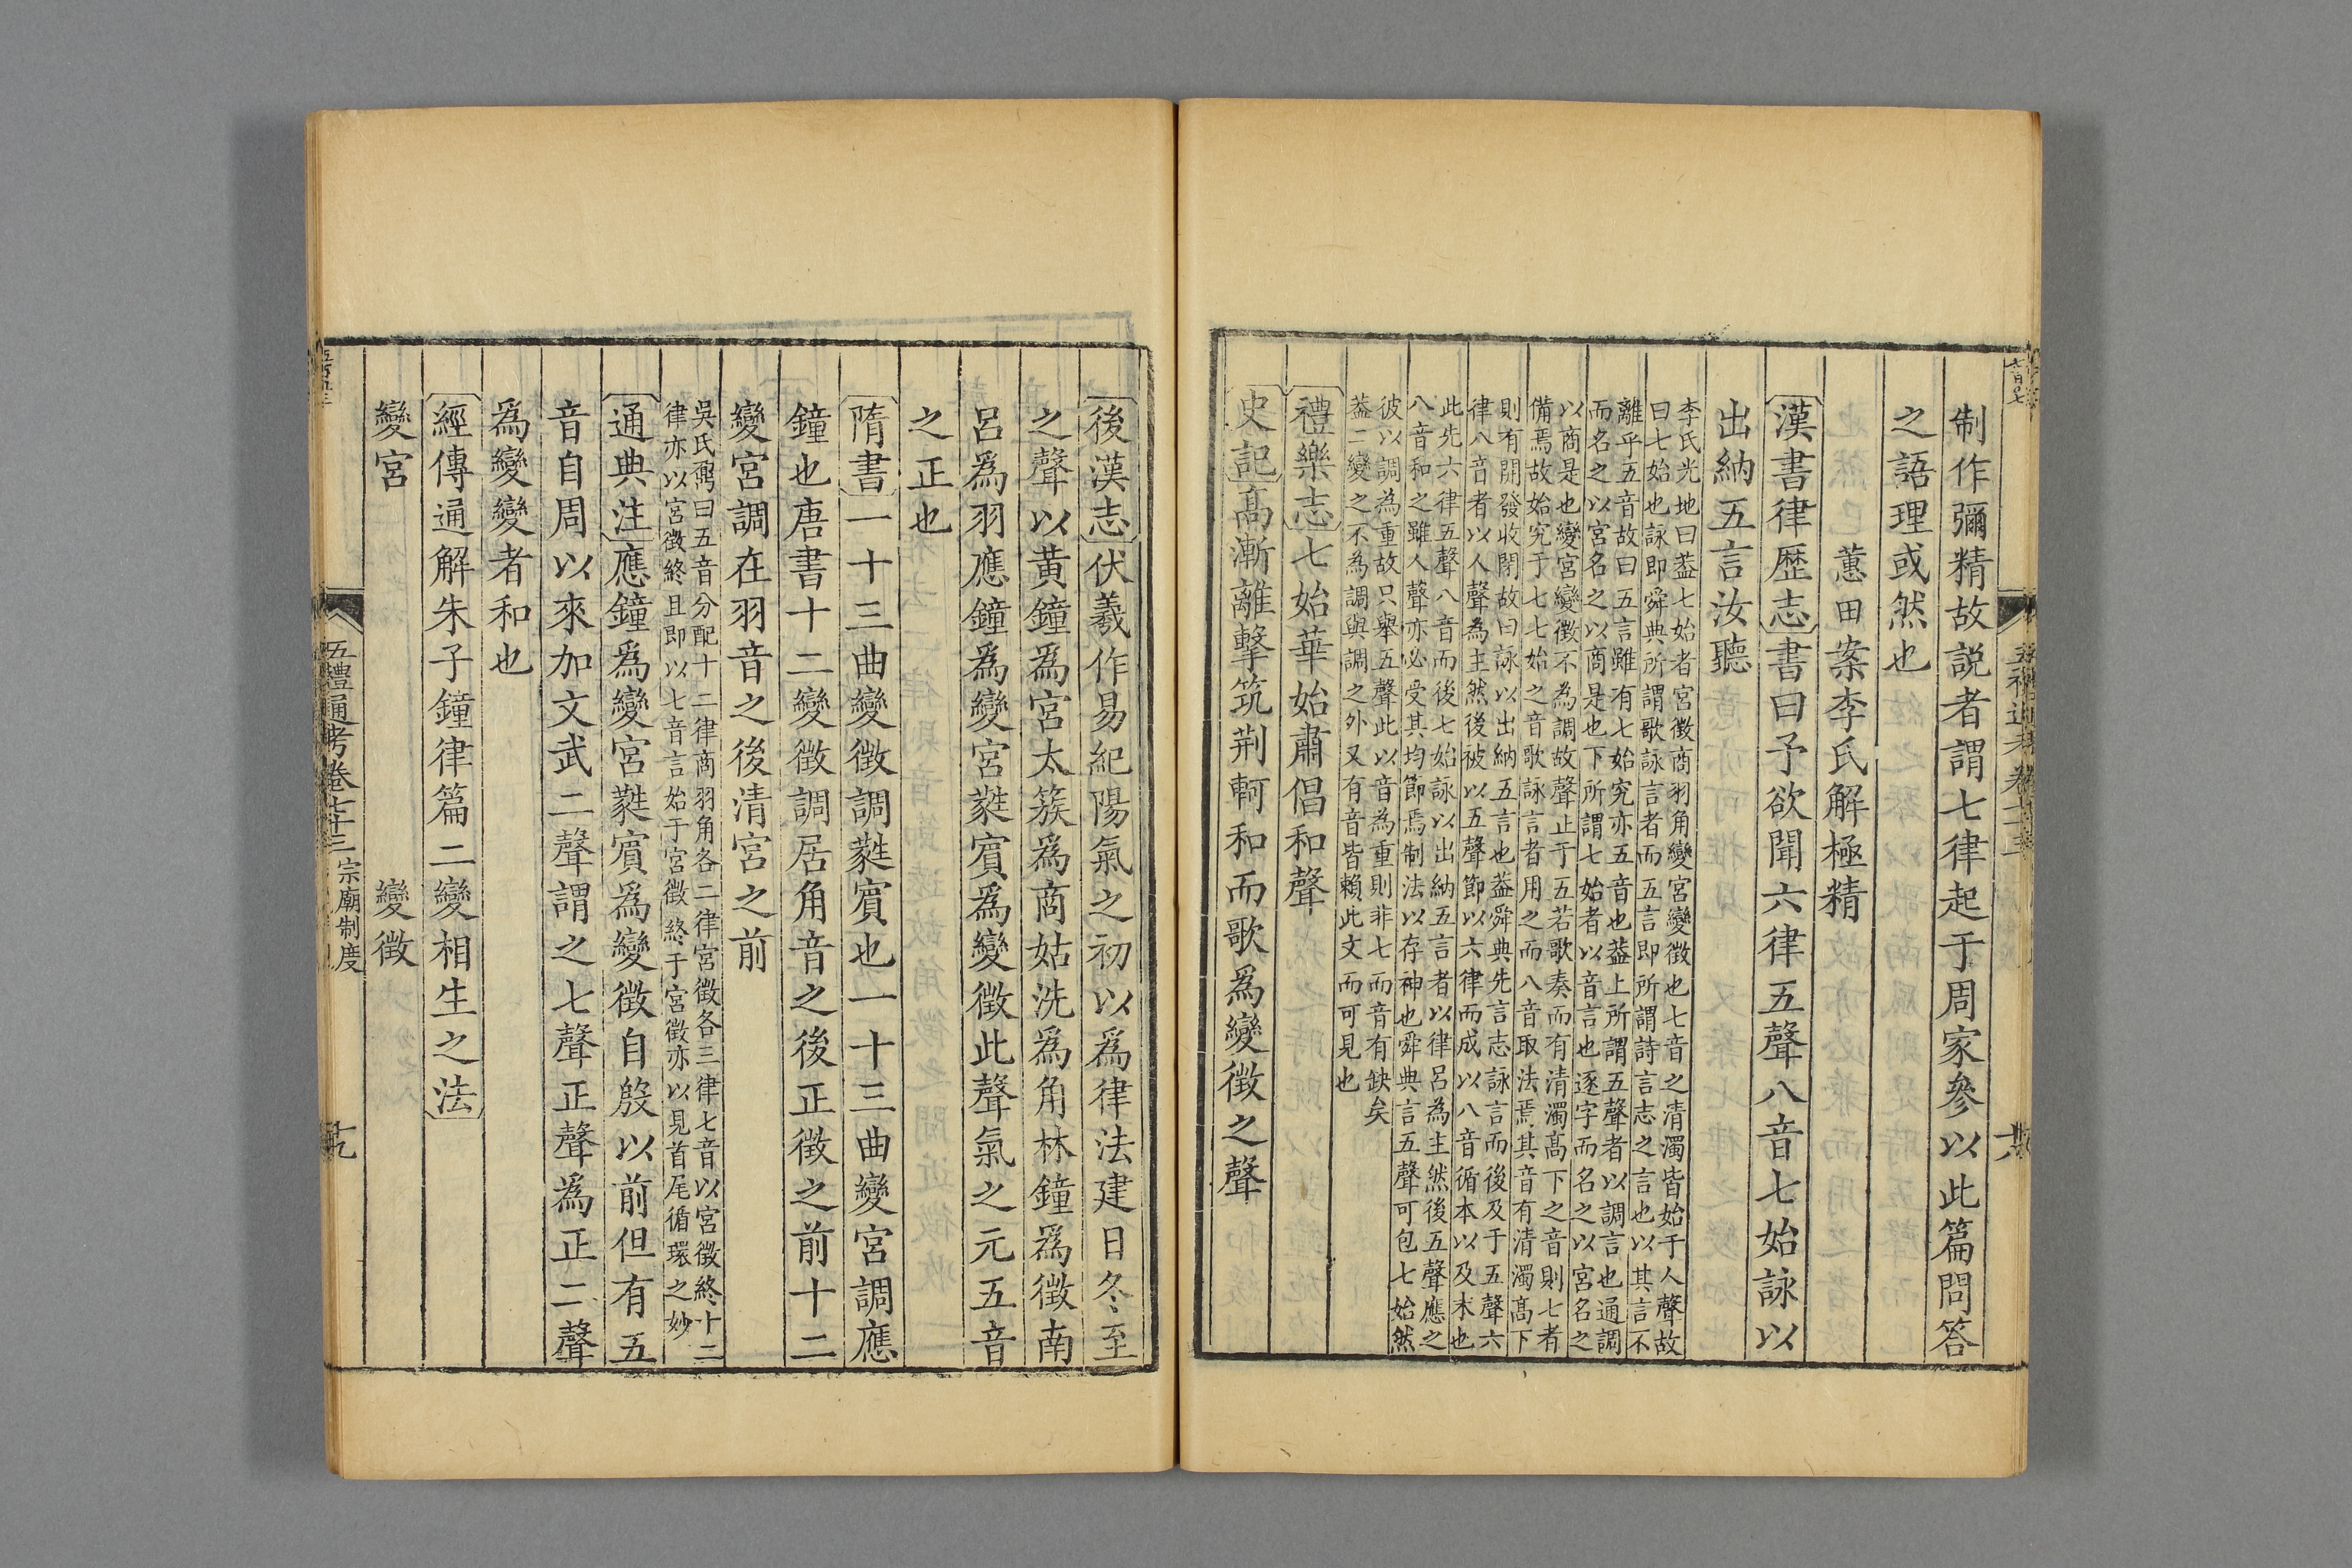 制作彌精故說者謂七律起于周家參以此篇問答
之語理或然也
蕙田案李氏解極精
漢書律歷志書曰予欲聞六律五聲八音七始詠以
出納五言汝聽
李氏光地曰葢七始者宮徵商羽角變宮變徵也七音之清濁皆始于人聲故
曰七始也詠即舜典所謂歌詠言者而五言即所謂詩言志之言也以其言不
離乎五音故曰五言雖有七始究亦五音也葢上所謂五聲者以調言也通調
而名之以宮名之以商是也下所謂七始者以音言也逐字而名之以宮名之
以商是也變宮變徵不為調故聲止于五若歌奏而有清濁髙下之音則七者
備焉故始究于七七始之音歌詠言者用之而八音取法焉其音有清濁髙下
則有開發收閉故曰詠以出納五言也葢舜典先言志詠言而後及于五聲六
律八音者以人聲為主然後被以五聲節以六律而成以八音循本以及末也
此先六律五聲八音而後七始詠以出納五言者以律呂為主然後五聲應之
八音和之雖人聲亦必受其均節焉制法以存神也舜典言五聲可包七始然
彼以調為重故只舉五聲此以音為重則非七而音有缺矣
葢二變之不為調與調之外又有音皆賴此文而可見也
禮樂志七始華始肅倡和聲
史記髙漸離擊筑荆軻和而歌爲變徵之聲
後漢志伏羲作易紀陽氣之初以爲律法建日冬至
之聲以黃鐘爲宮太簇爲商姑洗爲角林鐘爲徵南
呂爲羽應鐘爲變宮蕤賓爲變徵此聲氣之元五音
之正也
隋書一十三曲變徵調蕤賓也一十三曲變宮調應
鐘也唐書十二變徵調居角音之後正徵之前十二
變宮調在羽音之後清宮之前
吳氏鼐曰五音分配十二律商羽角各二律宮徵各三律七音以宮徵終十二
律亦以宮徵終且即以七音言始于宮徵終于宮徵亦以見首尾循環之妙
通典注應鐘爲變宮蕤賓爲變徵自殷以前但有五
音自周以來加文武二聲謂之七聲正聲爲正二聲
爲變變者和也
經傳通解朱子鐘律篇二變相生之法
變宮　變徵
五禮通考卷七十三 宗廟制度
十九